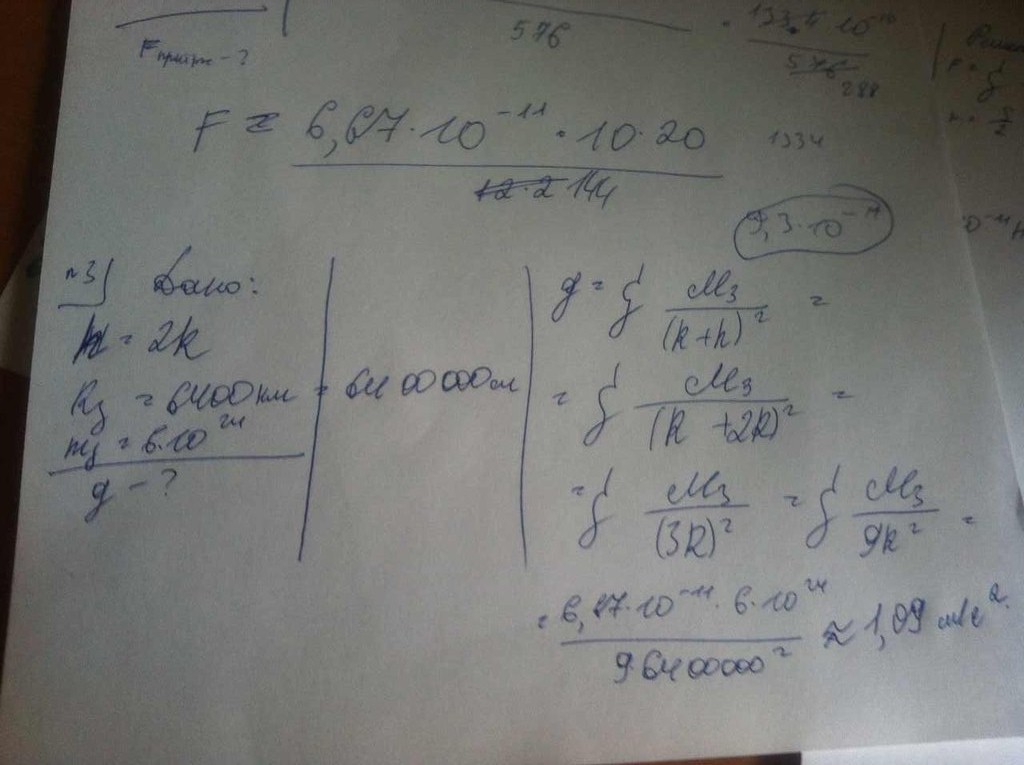 Fприт - ?
576
133,4 · 10⁻¹⁰
576
288
F = 6,67 · 10⁻¹¹ · 10 · 20
12 · 2 144
1334
9,3 · 10⁻¹¹
n3) Дано:
h = 2R
Rз = 6400 км = 6400 000 м
mз = 6 · 10²⁴
g - ?
g = G Mз/(R+h)² =
= G Mз/(R+2R)² =
= G Mз/(3R)² = G Mз/9R² =
= 6,67 · 10⁻¹¹ · 6 · 10²⁴/9 · 6400000² ≈ 1,09 м/с².